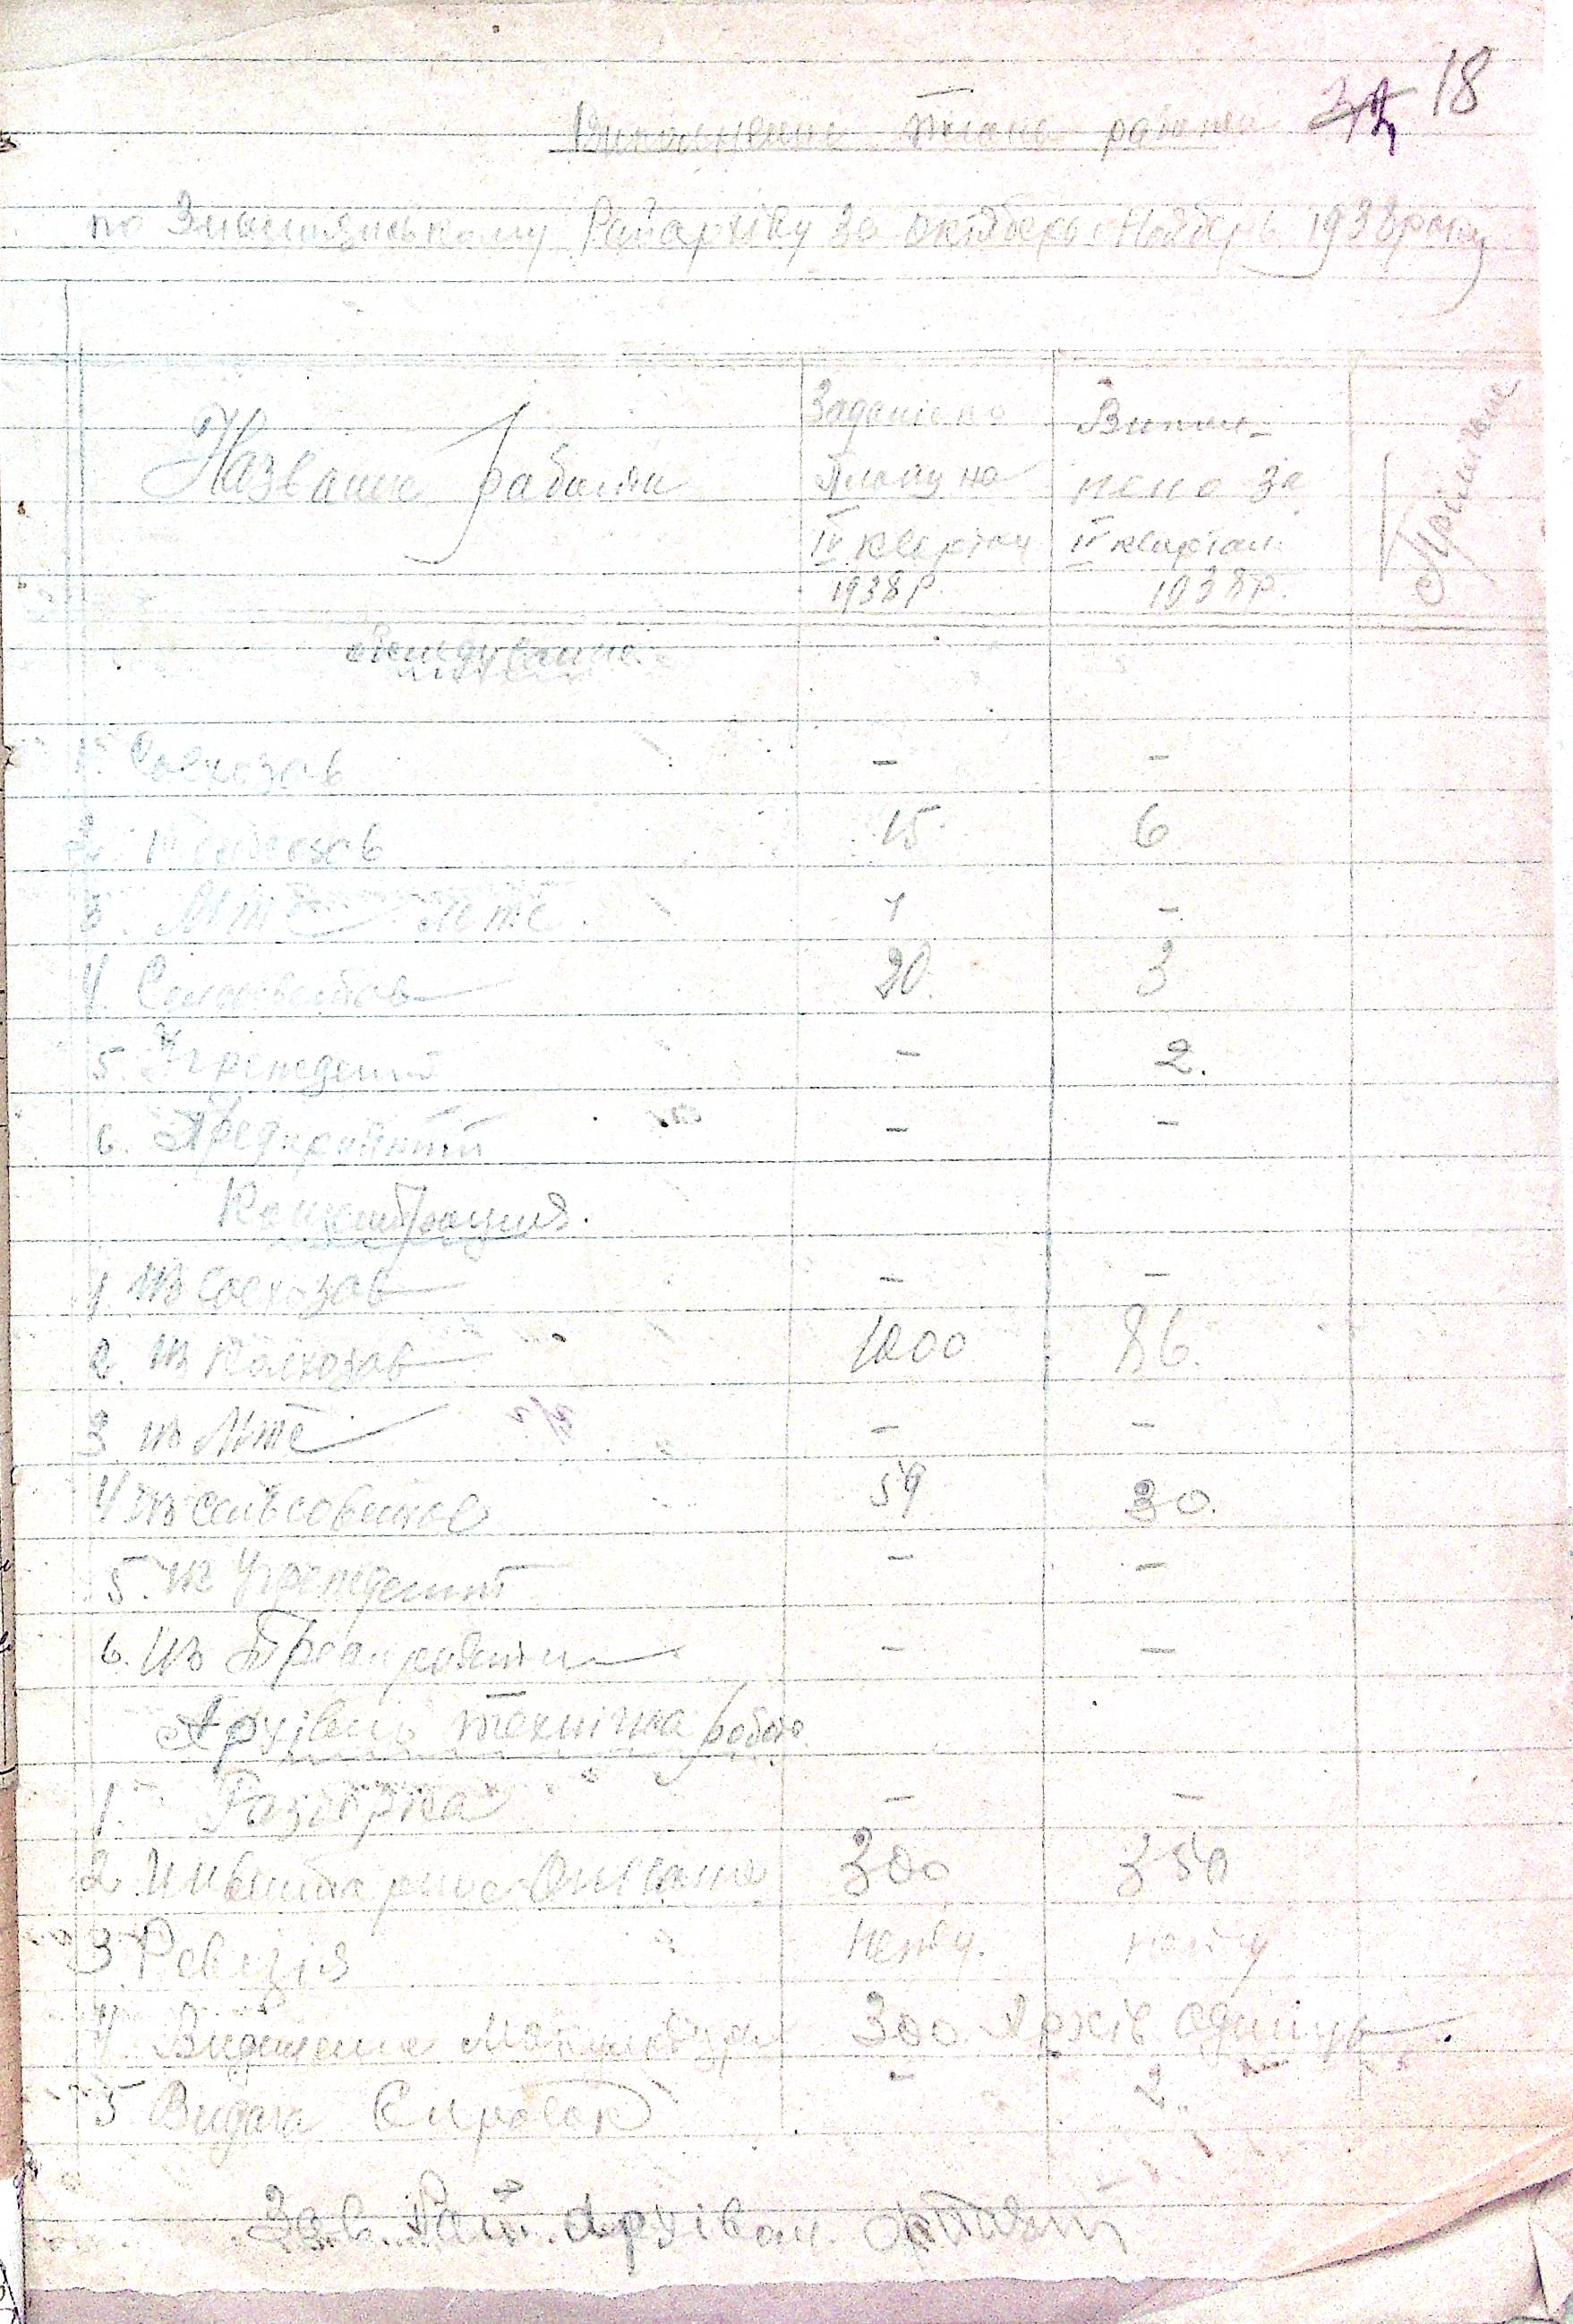 18
Выполнение плана работы
по Райархіву за октябрь Ноябрь 1938 року
Название работы
Заданіе по
Плану на
IV квартал
1938 р.
Выпол-
нено за
IV квартал
1938 р.
1. Совхозов - -
2. Колхозов 15 6
3. МТС 1 -
4. Сельсоветов 20 3
5. Учреждений - 2.
6. Предприятий - -
Концентрация.
1 из Совхозов - -
2. из Колхозов 1000 86.
3 из МТС - -
4 из сельсоветов 59 30.
5. из Учреждений - -
6. из Предприятий - -
Архівно технична робота
1. Разборка - -
2 Инвентарное Описание 300 350
3 Ревизія нету. нету
4 Видиление Макулатури 300 Архів єдиниць
5 Видача Справок - 2
Зав. Рай. Архівом